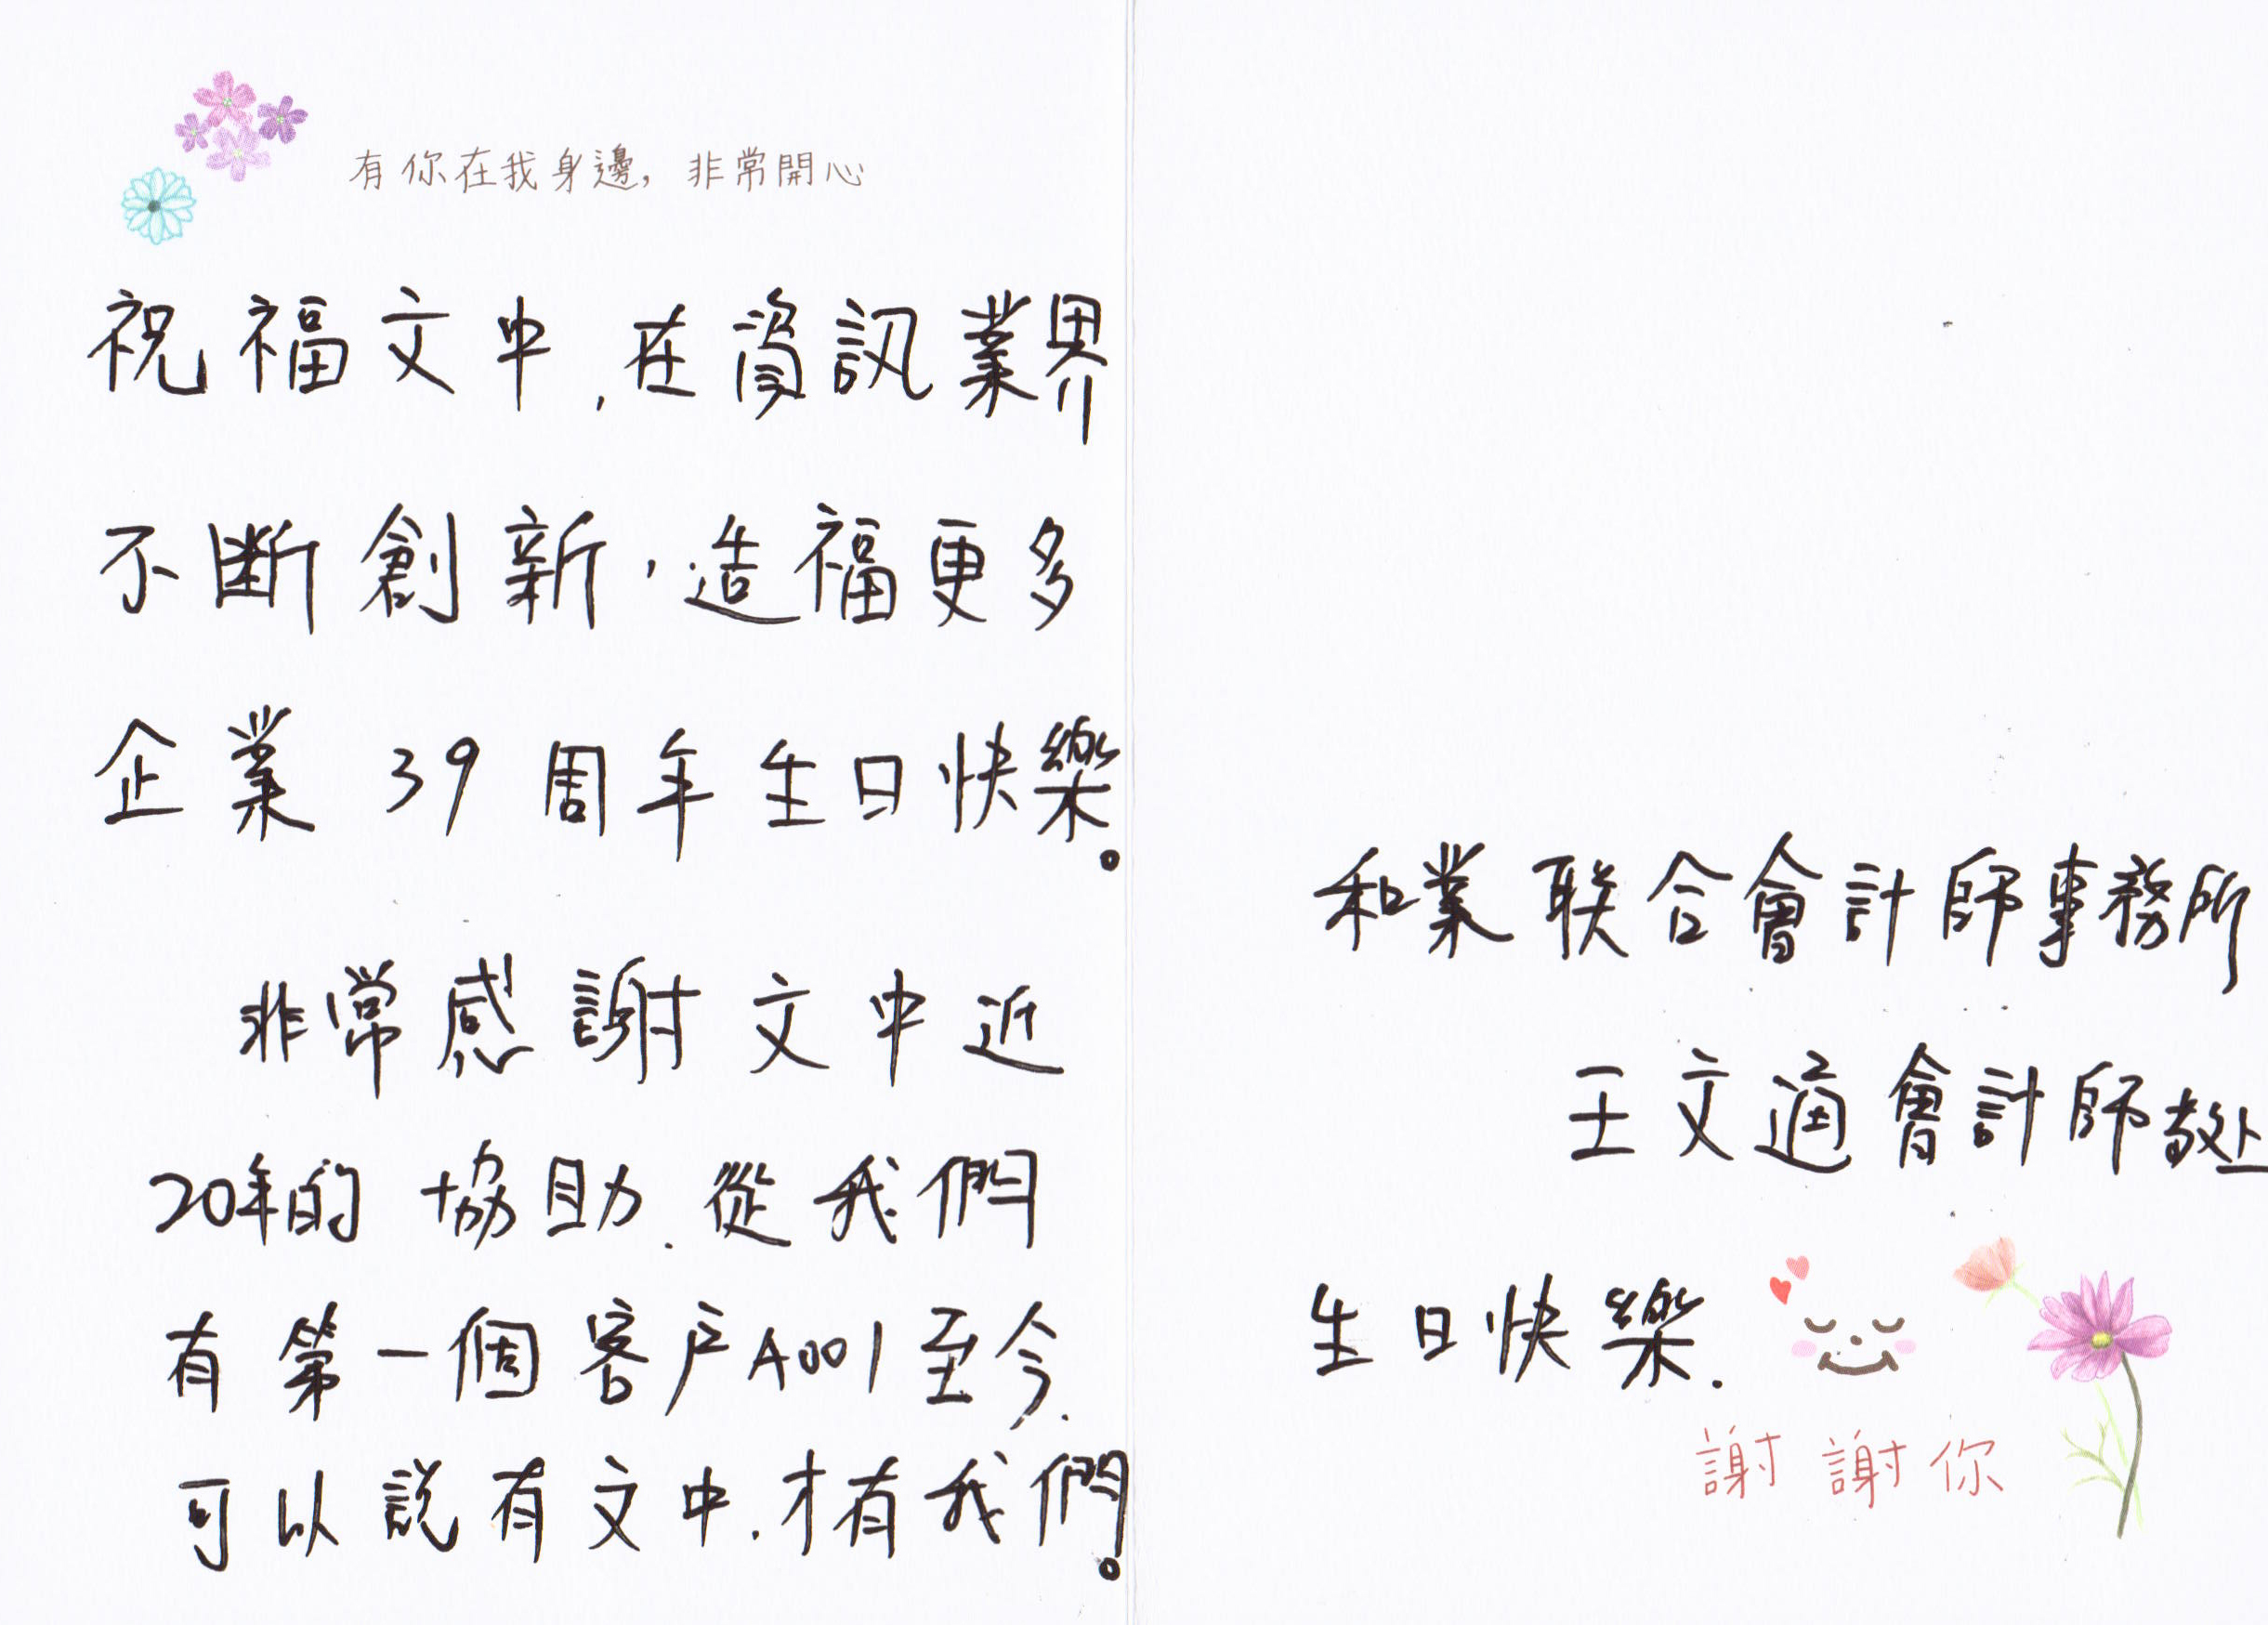 有你在我身邊，非常開心
祝福文中，在資訊業界
不斷創新，造福更多
企業 39 周年生日快樂。
非常感謝文中近
20年的協助.從我們
有第一個客戶A001至今.
可以說有文中.才有我們。
和業联合會計師事務所
王文適會計師敬上
生日快樂.
謝謝你